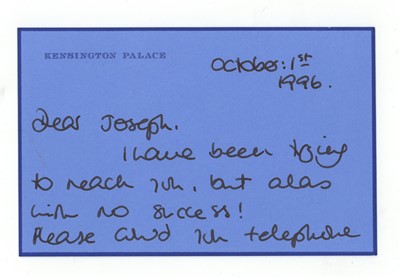 KENSINGTON PALACE
October: 1st
1996.
Dear Joseph.
I have been trying
to reach you, but alas
with no success!
Please could you telephone